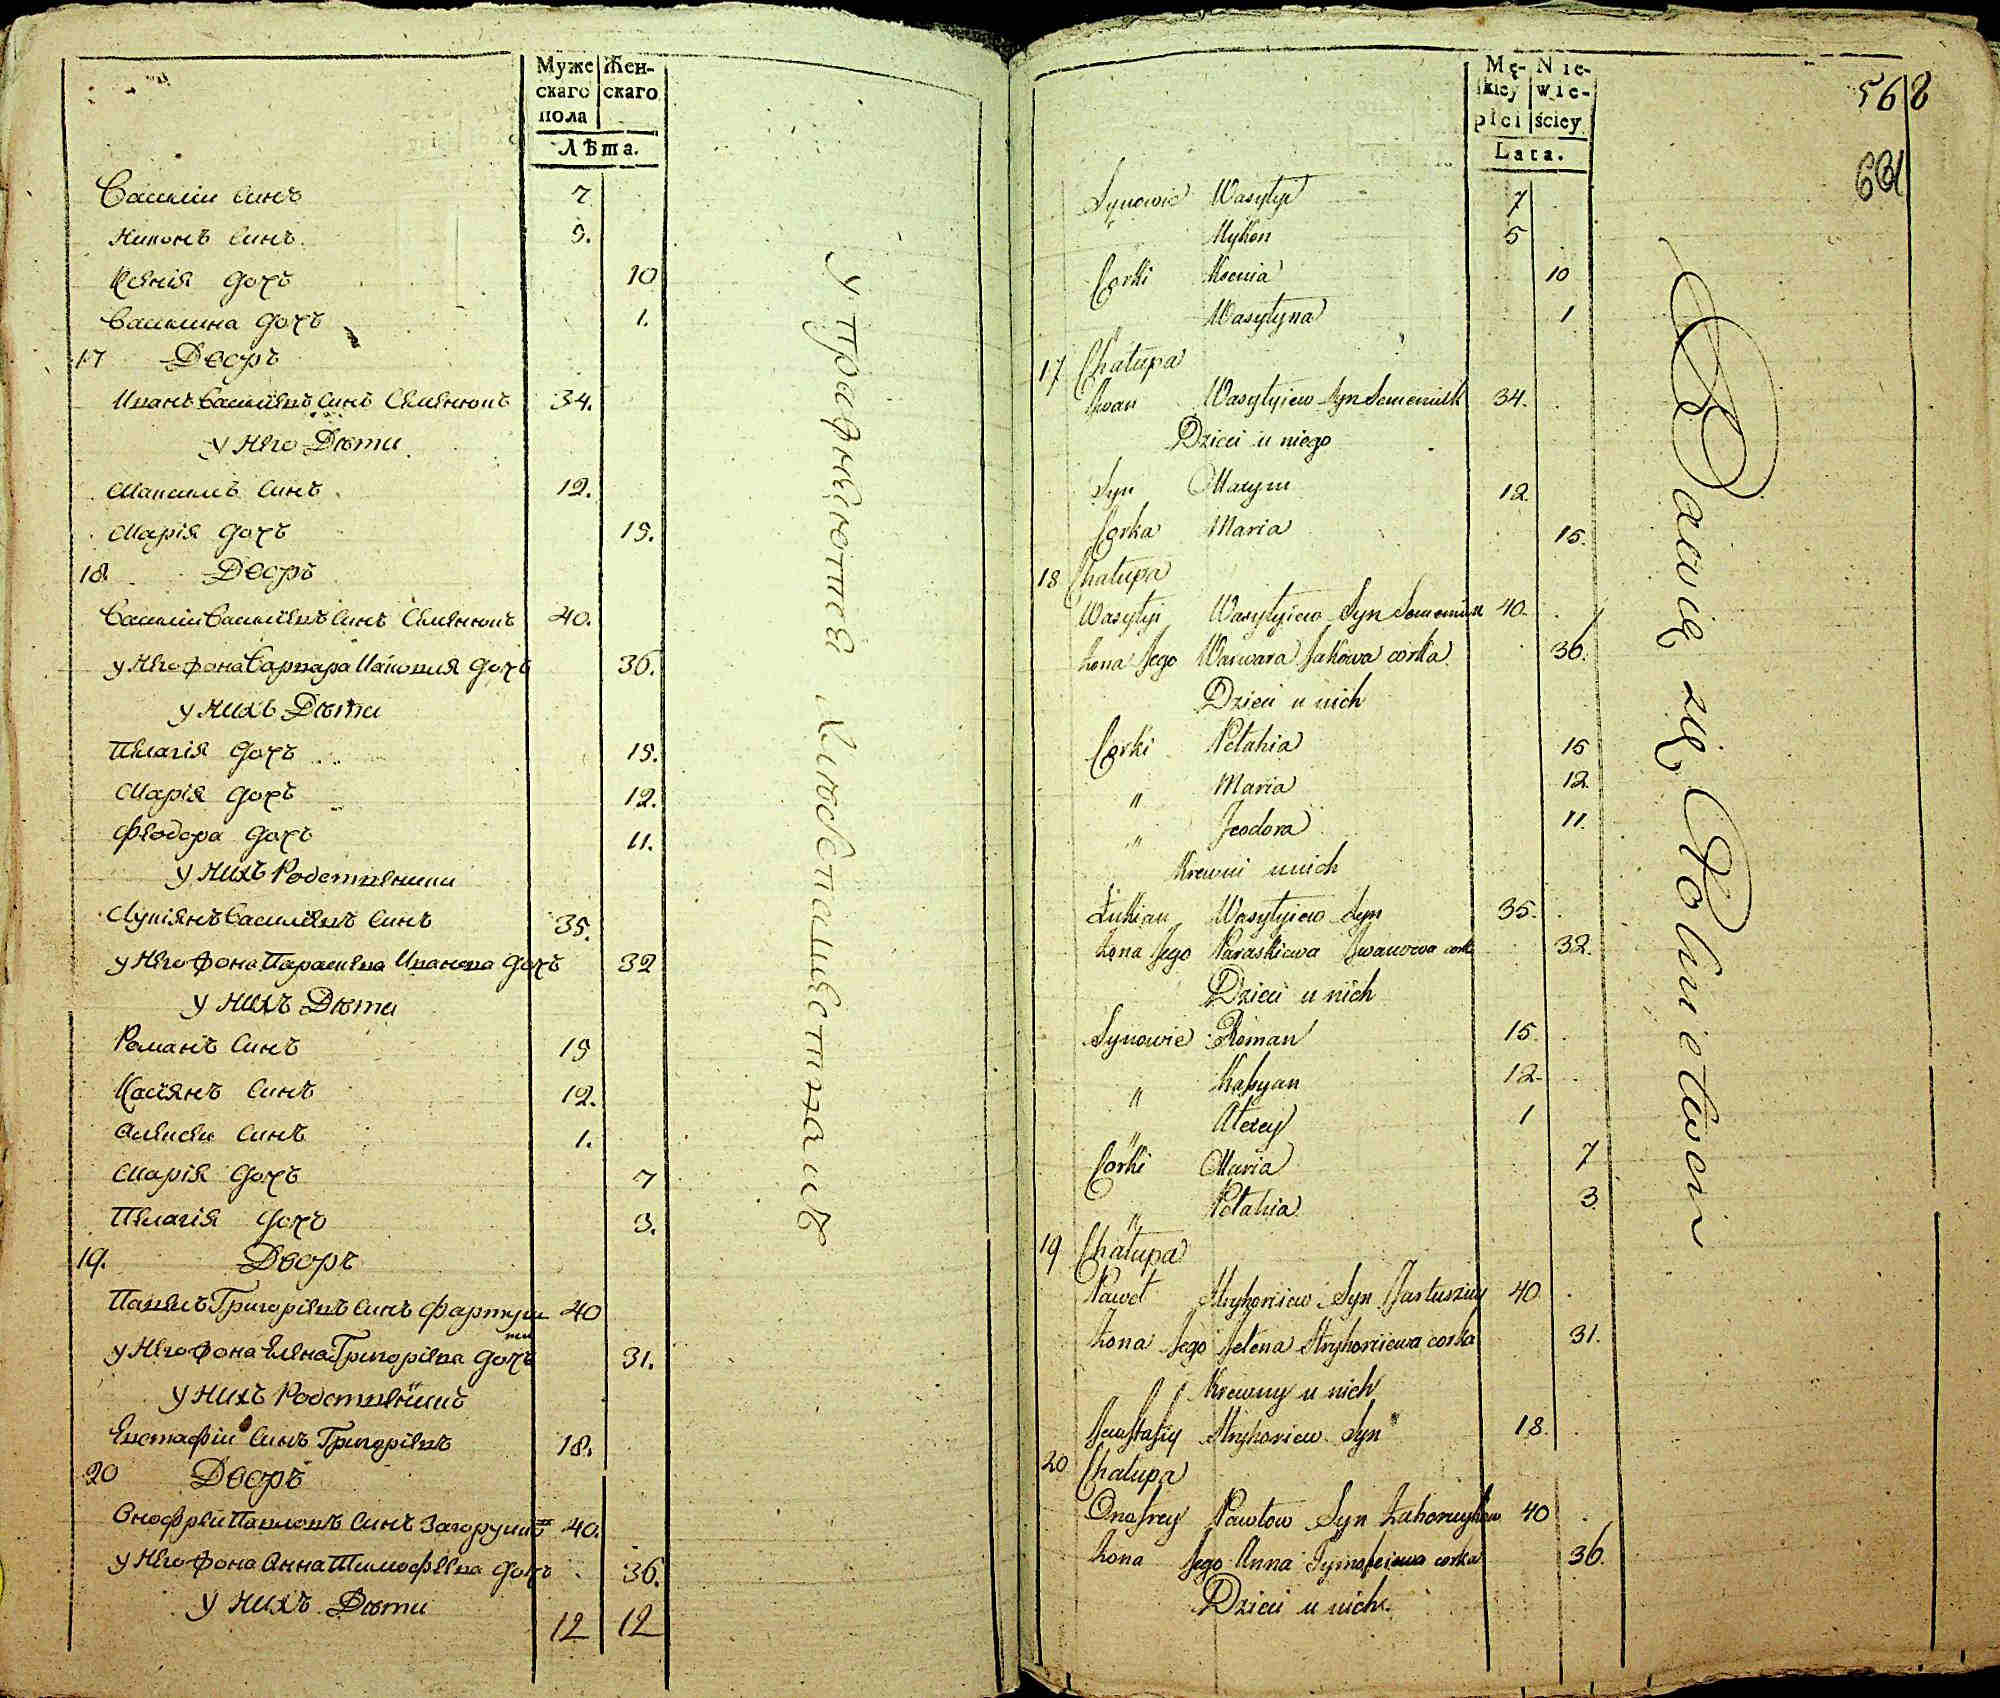 Муже Жен-
скаго скаго
пола
Лѣта.
Василiи Синъ 7
Никонъ Синъ 5.
Ксенiя Дочъ 10
Василина Дочъ 1.
17 Дворъ
Иванъ Василiевъ Синъ Семенюкъ 34.
у Него Дѣти
Максимъ Синъ 12.
Марiя Дочъ 15.
18. Дворъ
Василiи Василiевъ Синъ Семенюкъ 40.
у Него жона Варвара Яковия Дочъ 36.
у Нихъ Дѣти
Пелагiя Дочъ 15.
Марiя Дочъ 12.
Феодора Дочъ 11.
у Нихъ Родственики
Лукiянъ Василiевъ Синъ 35.
у Него жона Параскева Иванова Дочъ 32
у Нихъ Дѣти
Романъ Синъ 15
Касiянъ Синъ 12.
Алексеи Синъ 1.
Марiя Дочъ 7
Пелагiя Дочъ 3.
19. Дворъ
Павелъ Григорiевъ Синъ 40
у Него жона Елена Григорiева Дочъ 31.
у Нихъ Родственикъ
Евстафiи Синъ Григорiевъ 18.
20 Дворъ
Онофреи Павловъ Синъ 40.
у Него жона Анна Тимофеева Дочъ 36.
у Нихъ Дѣти
12 12
упражнюются Хлебопашествомъ
Mę- Nie-
kiey wie-
płci ściey
Lata.
568
Synowie Wasylyi 7
Mykon 5
Corki Ksenia 10
Wasylyna 1
17 Chałupa
Iwan Wasylyiew Syn Semeniuk 34.
Dzieci u niego
Syn Maxym 12
Corka Maria 15.
18 Chałupa
Wasylyi Wasylyiew Syn Semeniuk 40.
żona Jego Warwara Jakowa corka 36.
Dzieci u nich
Corki Pelahia 15
" Maria 12.
" Feodora 11.
Krewni u nich
Łukian Wasylyiew Syn 35.
żona Jego Paraskiewa Iwanowa corka 32.
Dzieci u nich
Synowie Roman 15.
" Kasyan 12.
" Alexey 1
Corki Maria 7
" Pelahia 3
19 Chałupa
Paweł Hryhoriiew Syn 40
żona Jego Jelena Hryhoriiewa corka 31.
Krewny u nich
Hryhoriew Syn 18.
20 Chałupa
Onofrey Pawłow Syn 40
żona Jego Anna Tymofeiewa corka 36.
Dzieci u nich.
Bawią się Rolnictwem